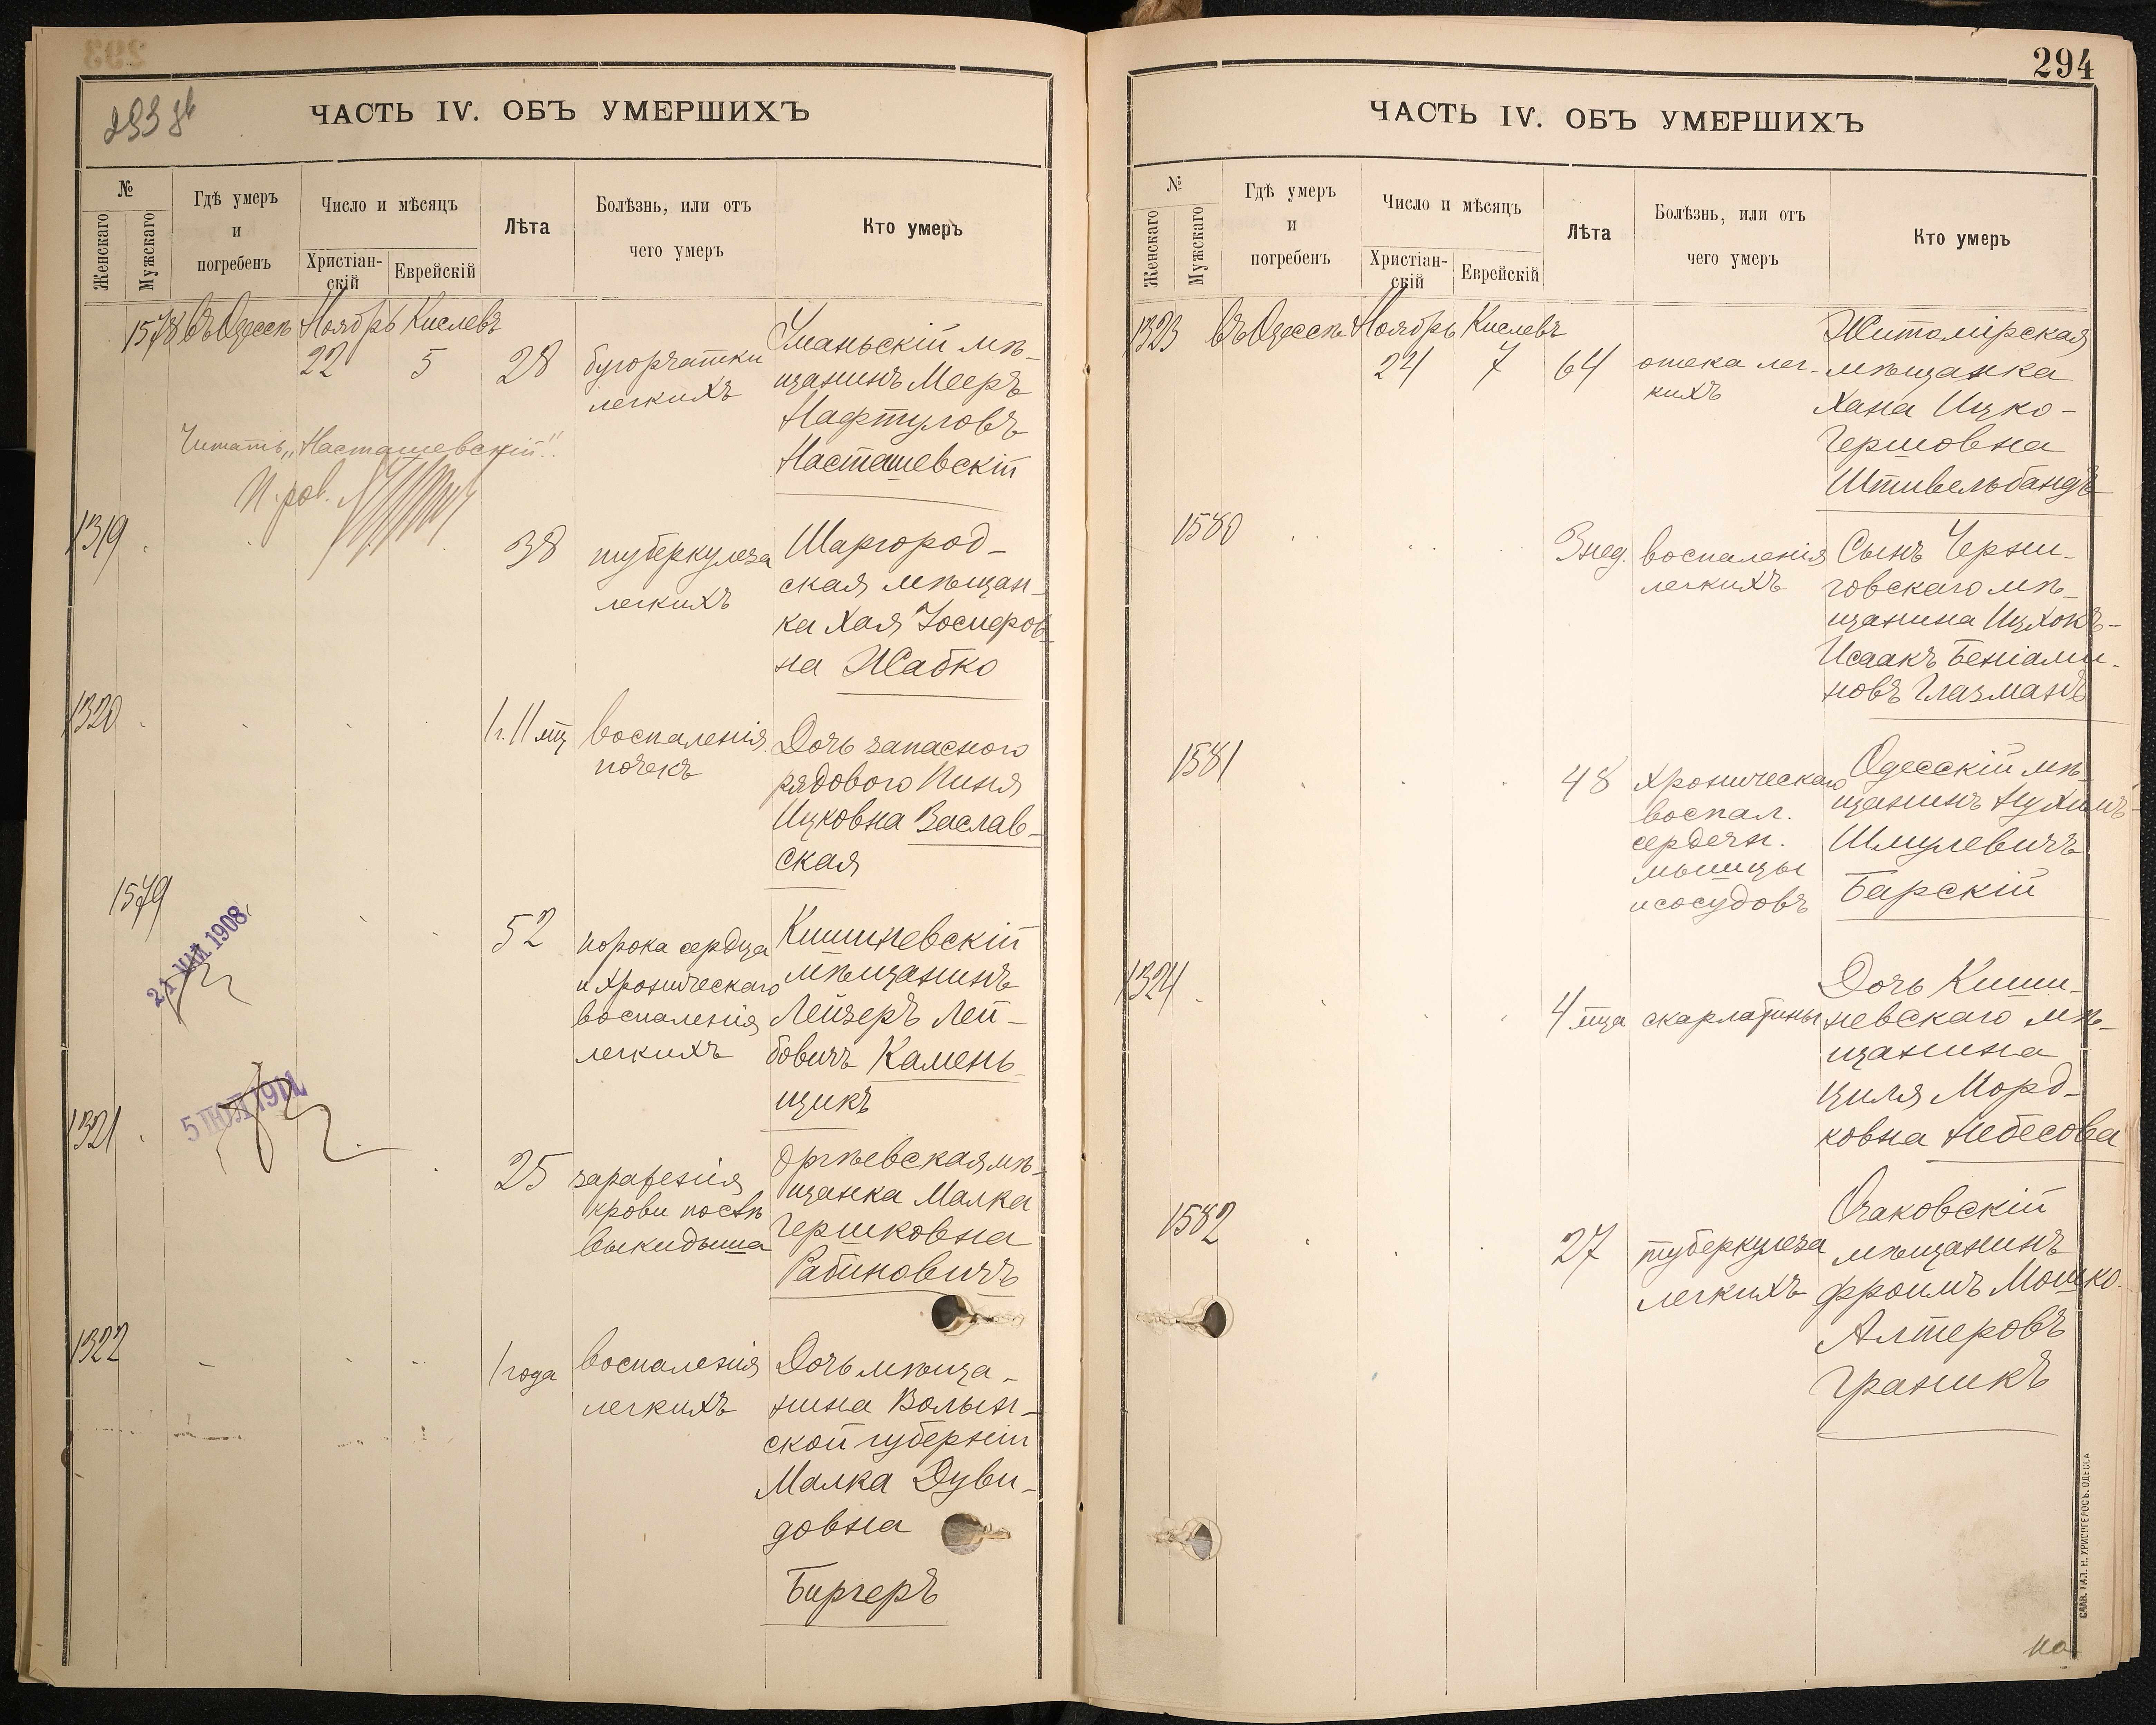 293 об
ЧАСТЬ IV. ОБЪ УМЕРШИХЪ
№
Женскаго
Мужскаго
Гдѣ умеръ
и
погребенъ
Число и мѣсяцъ
Христіан-
скій
Еврейскій
Лѣта
Болѣзнь, или отъ
чего умеръ
Кто умеръ
1578 Въ Одессѣ Ноябрь Кислевъ
22 5 28
бугорчатки
легкихъ
Уманьскій мѣ-
щанинъ Мееръ
Нафтуловъ
Насташевскій
Читать „Насташевскій"
1319
38
туберкулеза
легкихъ
Шаргород-
ская мѣщан-
ка Хая Іосифов-
на Жабко
1320
1 г. 11 мц
воспаленія
почекъ
Дочь запасного
рядового Пиня
Ицковна Заслав-
ская
1579
21 МАЙ 1908
52
порока сердца
и хроническаго
воспаленія
легкихъ
Кишиневскій
мѣщанинъ
Лейзеръ Лей-
бовичъ Камень-
щикъ
1321
25
зараженія
крови послѣ
выкидыша
Оргѣевская мѣ-
щанка Малка
Гершковна
Рабиновичъ
1322
1 года
воспаленія
легкихъ
Дочь мѣща-
нина Волын-
ской губерніи
Малка Дуви-
довна
Биргеръ
294
ЧАСТЬ IV. ОБЪ УМЕРШИХЪ
№
Женскаго
Мужскаго
Гдѣ умеръ
и
погребенъ
Число и мѣсяцъ
Христіан-
скій
Еврейскій
Лѣта
Болѣзнь, или отъ
чего умеръ
Кто умеръ
1323 Въ Одессѣ Ноябрь Кислевъ
24 7 64
отека лег-
кихъ
Житомірская
мѣщанка
Хана Ицко-
Гершовна
Штивельбандъ
1580
3 нед.
воспаленія
легкихъ
Сынъ Черни-
говскаго мѣ-
щанина Ицхокъ-
Исаакъ Беніами-
новъ Глазманъ
1581
48
хроническаго
воспал.
сердечн.
мышцы
и сосудовъ
Одесскій мѣ-
щанинъ Нухимъ-
Шмулевичъ
Барскій
1324
4 мца
скарлатины
Дочь Киши-
невскаго мѣ-
щанина
Циля Морд-
ковна Небесова
1582
27
туберкулеза
легкихъ
Очаковскій
мѣщанинъ
Фроимъ Мошко-
Алтеровъ
Граникъ